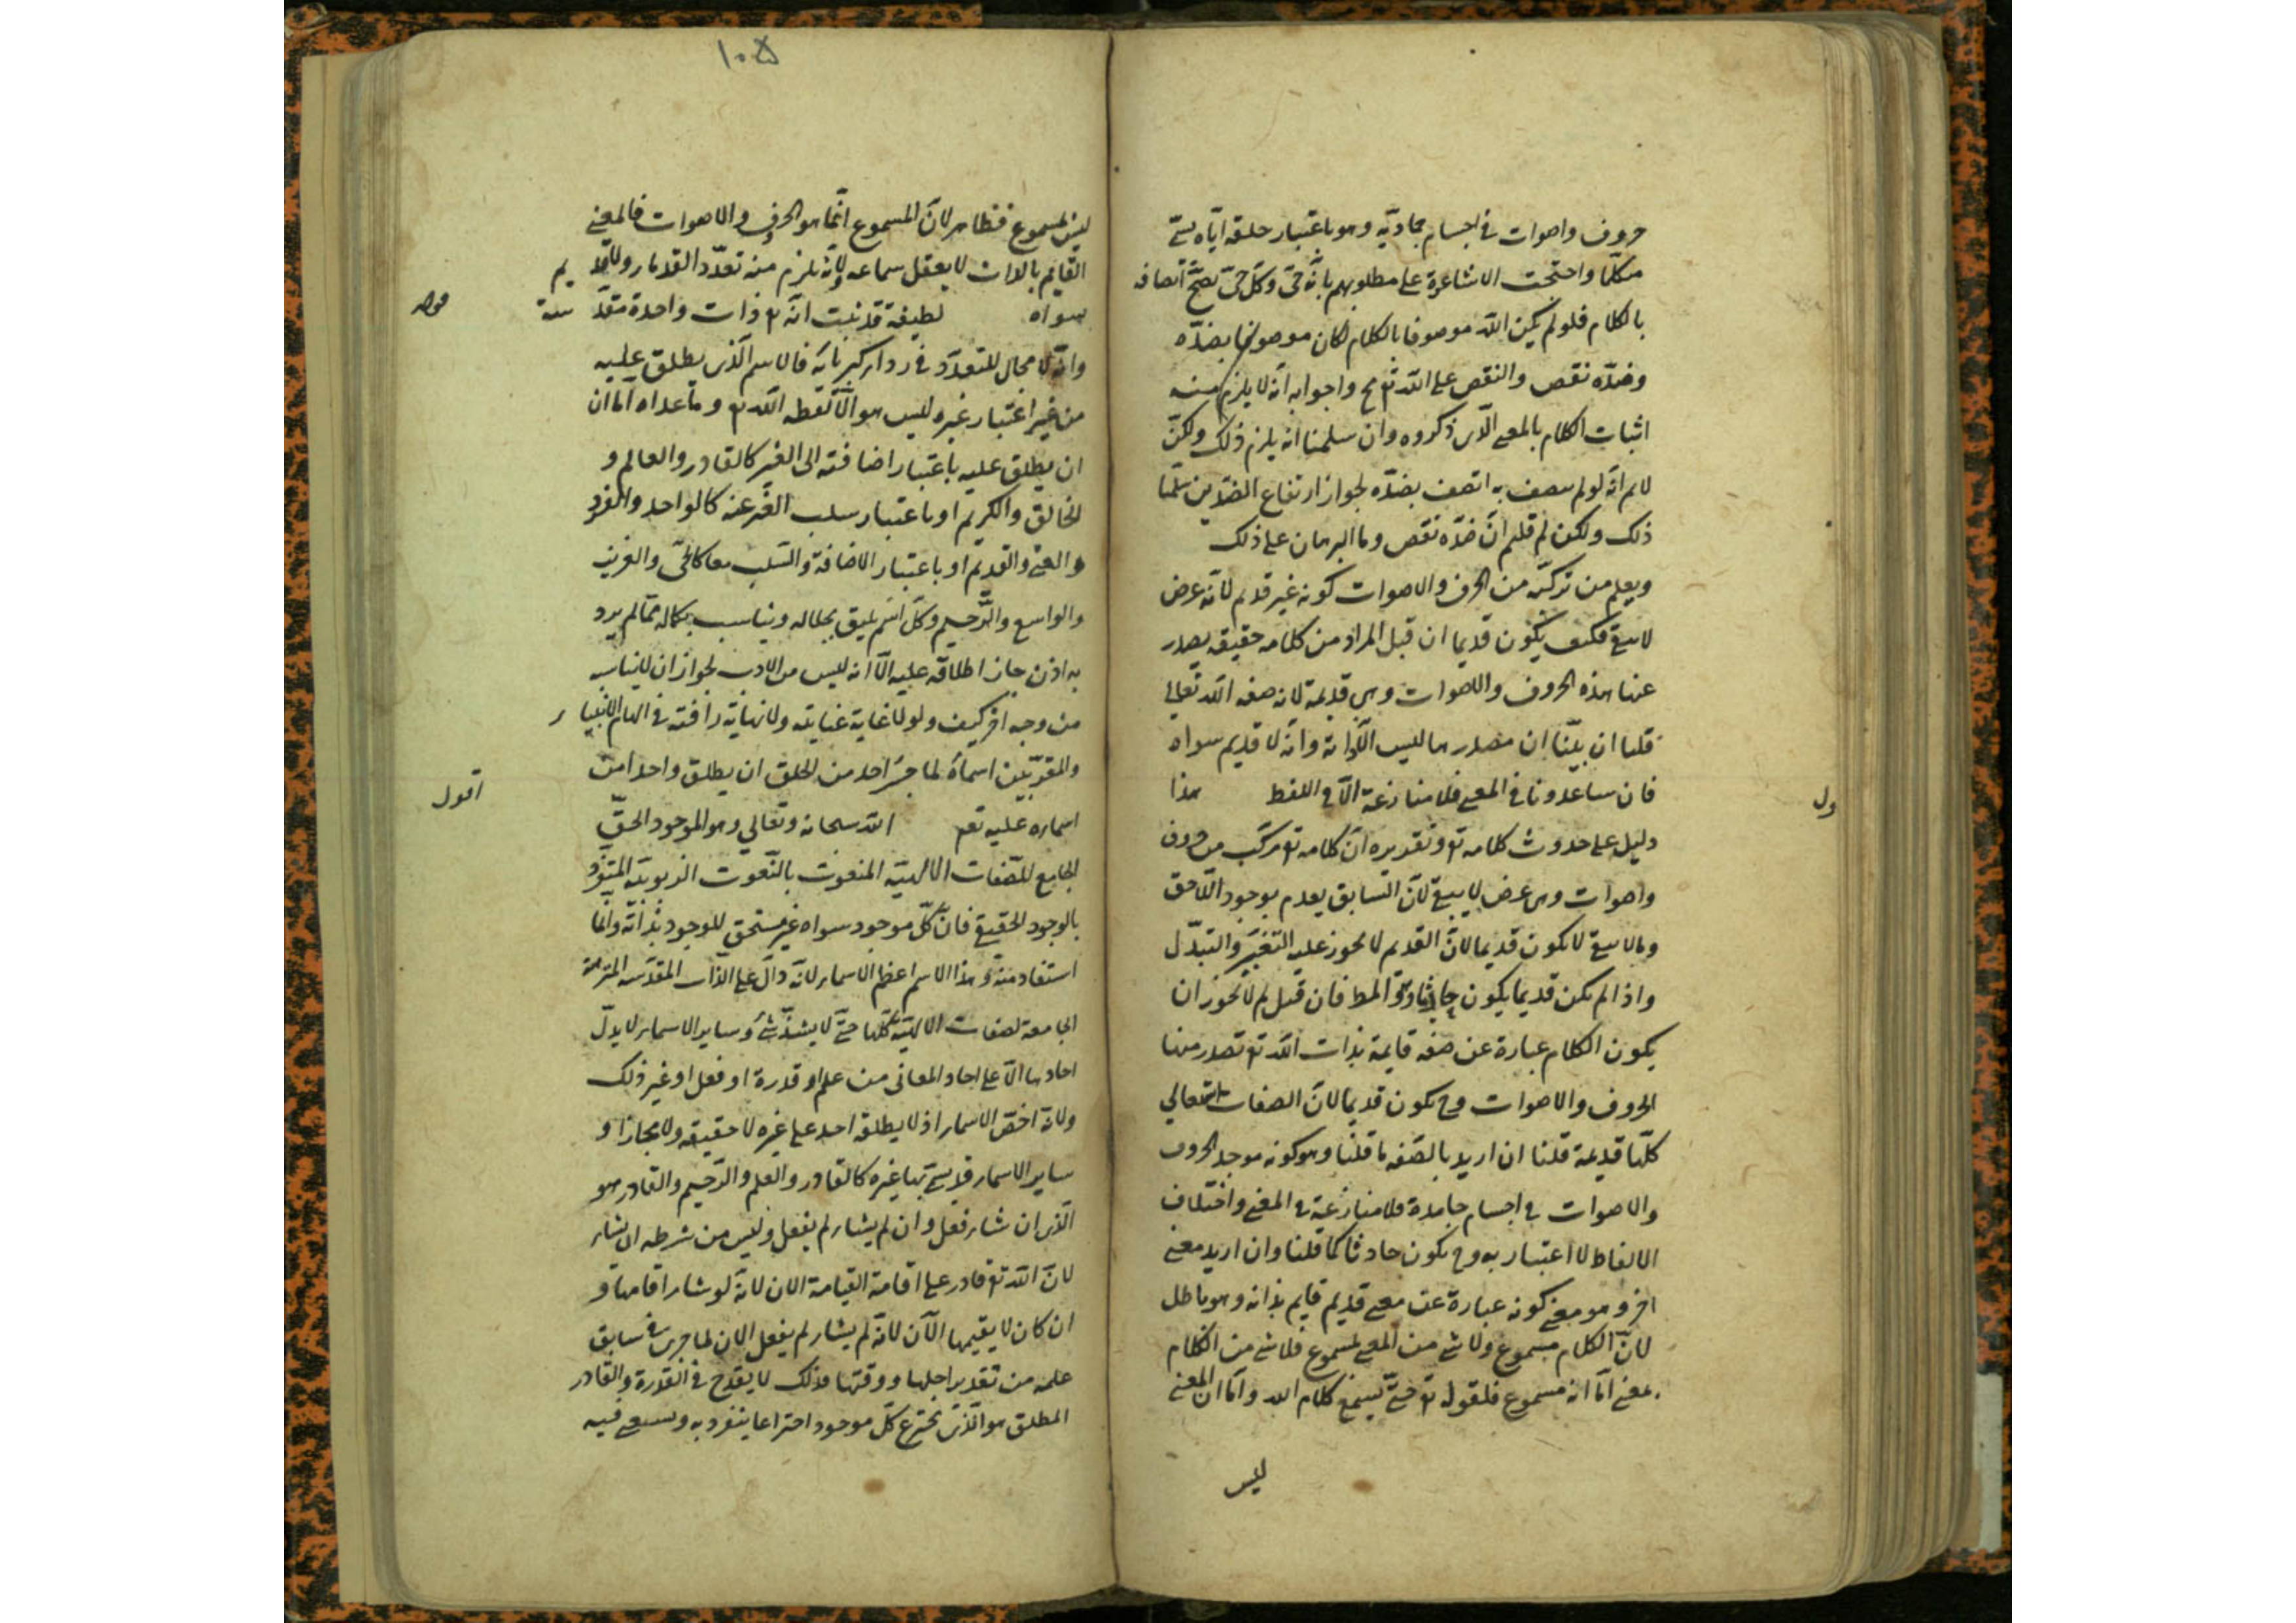 حروف واصوات في اجسام جمادية وهو باعتبار خلقه اياه يسمى
متكلما واحتجت الاشاعرة على مطلوبهم بانه حي وكل حي يصح اتصافه
بالكلام فلو لم يكن الله موصوفا بالكلام لكان موصوفا بضده
وضده نقص والنقص على الله تع مح واجوابه انه لا يلزم منه
اثبات الكلام بالمعنى الذى ذكروه وان سلمنا انه يلزم ذلك ولكن
لانم انه لو لم يتصف به اتصف بضده لجواز ارتفاع الضدين سلمنا
ذلك ولكن لم قلتم ان ضده نقص وما البرهان على ذلك
ويعلم من تركبه من الحرف والاصوات كونه غير قديم لانه عرض
لا يبقى فكيف يكون قديما ان قيل المراد من كلامه حقيقة يصدر
عنها هذه الحروف والاصوات وهى قديمة لانه صفه الله تعالى
قلنا ان بينا ان مصدرها ليس الا ذاته وانه لا قديم سواه
فان ساعدونا في المعنى فلا منازعة الا في اللفظ هذا
ول
دليل على حدوث كلامه تع وتقديره ان كلامه تع مركب من حروف
واصوات وهى عرض لا يبقى لان السابق يعدم بوجود اللاحق
وما لا يبقى لا يكون قديما لان القديم لا يجوز عليه التغير والتبدل
واذا لم يكن قديما يكون حادثا وهو المط فان قيل لم لا يجوز ان
يكون الكلام عبارة عن صفه قايمة بذات الله تع تصدر منها
الحروف والاصوات وح يكون قديما لان الصفات الله تعالى
كلها قديمة قلنا ان اريد بالصفه ما قلنا وهو كونه موجد الحروف
والاصوات في اجسام جامدة فلا منازعة في المعنى واختلاف
الالفاظ لا اعتبار به وح يكون حادثا كما قلنا وان اريد معنى
اخر وهو معنى كونه عبارة عن معنى قديم قايم بذاته وهو باطل
لان الكلام مسموع ولا شى من المعنى بمسموع فلا شى من الكلام
بمعنى اما انه مسموع فلقوله تع حتى يسمع كلام الله واما ان المعنى
ليس
١٠٥
ليس بمسموع فظاهر لان المسموع انما هو الحروف والاصوات فالمعنى
القايم بالذات لا يعقل سماعه ولانه يلزم منه تعدد القدماء ولا قديم
سواه لطيفة قد ثبت انه تع ذات واحدة مقدسة
وانه لا مجال للتعدد في رداء كبريائه فالاسم الذى يطلق عليه
من غير اعتبار غيره ليس هو الا لفظه الله تع وما عداه اما ان
ان يطلق عليه باعتبار اضافته الى الغير كالقادر والعالم و
الخالق والكريم او باعتبار سلب الغير عنه كالواحد والفرد
والغنى والقديم او باعتبار الاضافة والسلب معا كالحى والعزيز
والواسع والرحيم وكل اسم يليق بجلاله ويناسب بكماله مما لم يرد
به اذن جاز اطلاقه عليه الا انه ليس من الادب لجواز ان لا يناسبه
من وجه اخر كيف ولولا غاية عنايته ولا نهاية رافته في الهام الانبياء
والمقربين اسماءه لما جسر احد من الخلق ان يطلق واحدا من
اسمائه عليه تع الله سبحانه وتعالى وهو الموجود الحق
اقول
الجامع للصفات الالهية المنعوت بالنعوت الربوبية المتفرد
بالوجود الحقيقي فان كل موجود سواه غير مستحق للوجود بذاته وانما
استفاد منه وهذا الاسم اعظم الاسماء لانه دال على الذات المقدسه المنزهة
الجامعة لصفات الالهية كلها حتى لا يشذ شئ وساير الاسماء لا يدل
احادها الا على احاد المعانى من علم او قدرة او فعل او غير ذلك
ولانه اخص الاسماء اذ لا يطلقه احد على غيره لا حقيقه ولا مجازا و
ساير الاسماء قد يسمى بها غيره كالقادر والعليم والرحيم والقادر هو
الذى ان شاء فعل وان لم يشاء لم يفعل وليس من شرطه ان يشاء
لان الله تع قادر على اقامة القيامة الان لانه لو شاء اقامها و
ان كان لا يقيمها الآن لانه لم يشاء لم يفعل الان لما جرى في سابق
علمه من تقدير اجلها ووقتها فذلك لا يقدح في القدرة والقادر
المطلق هو الذى يخترع كل موجود اختراعا ينفرد به ويستغنى فيه